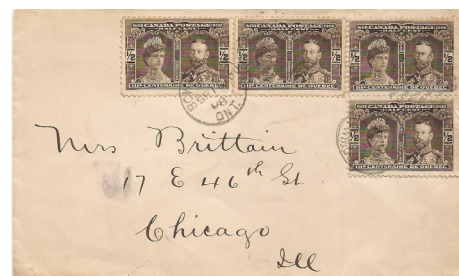 1608 CANADA POSTAGE 1908
HALF CENT
½ ½
IIIe CENTENAIRE DE QUEBEC
1608 CANADA POSTAGE 1908
HALF CENT
½ ½
IIIe CENTENAIRE DE QUEBEC
1608 CANADA POSTAGE 1908
HALF CENT
½ ½
IIIe CENTENAIRE DE QUEBEC
1608 CANADA POSTAGE 1908
HALF CENT
½ ½
IIIe CENTENAIRE DE QUEBEC
ONT.
Mrs Brittain
17 E 46th St
Chicago
Ill